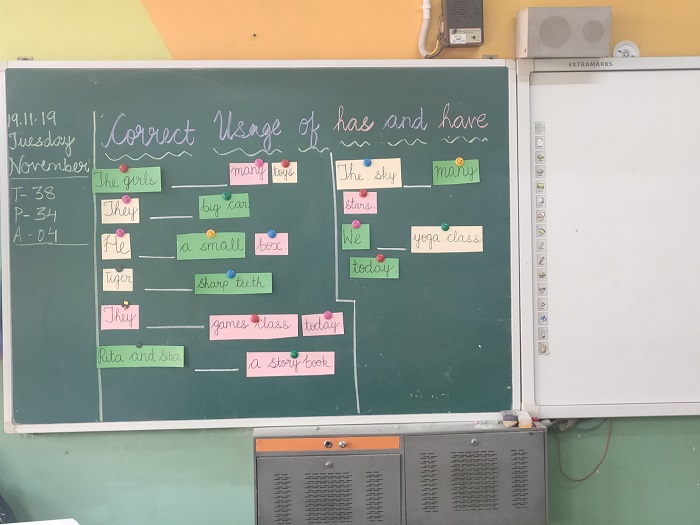 EXTRAMARKS
19.11.19
Tuesday
November
T-38
P-34
A-04
Correct Usage of has and have
The girls ______ many toys
They ______ big car
He ______ a small box
Tiger ______ sharp teeth.
They ______ games class today
Rita and Sta ______ a story book
The sky ____ many
stars.
We ____ yoga class
today.